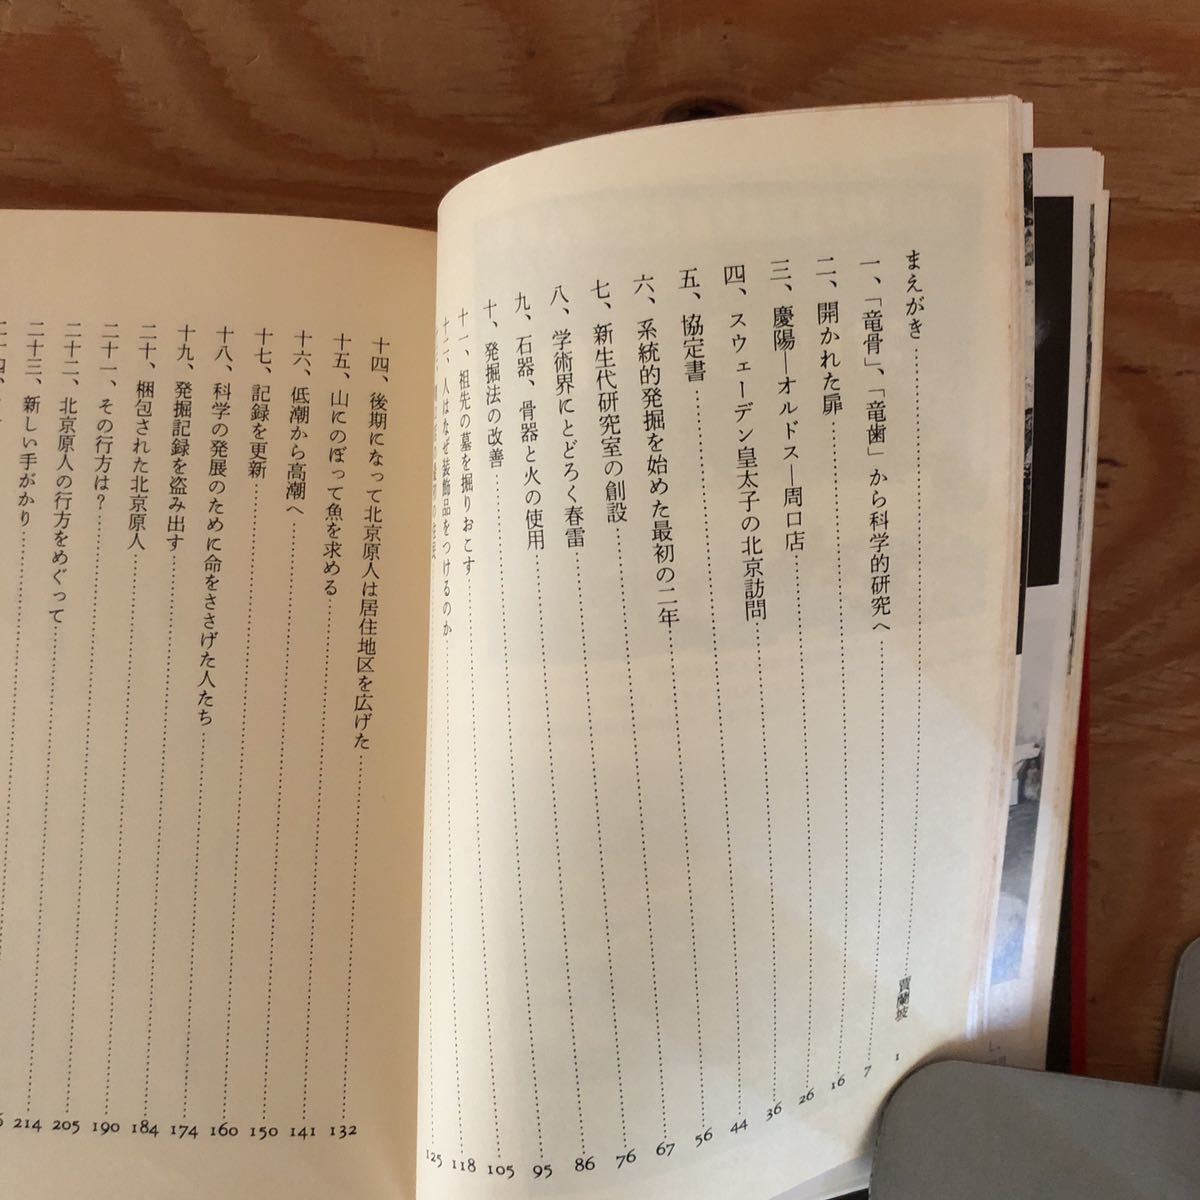 まえがき……賈蘭坡 1
一、「竜骨」、「竜歯」から科学的研究へ……7
二、開かれた扉……16
三、慶陽―オルドス―周口店……26
四、スウェーデン皇太子の北京訪問……36
五、協定書……44
六、系統的発掘を始めた最初の二年……56
七、新生代研究室の創設……67
八、学術界にとどろく春雷……76
九、石器、骨器と火の使用……86
十、発掘法の改善……95
十一、祖先の墓を掘りおこす……105
十二、人はなぜ装飾品をつけるのか……118
……125
十四、後期になって北京原人は居住地区を広げた……132
十五、山にのぼって魚を求める……141
十六、低潮から高潮へ……150
十七、記録を更新……160
十八、科学の発展のために命をささげた人たち……174
十九、発掘記録を盗み出す……184
二十、梱包された北京原人……190
二十一、その行方は？……205
二十二、北京原人の行方をめぐって……214
二十三、新しい手がかり……
二十四、